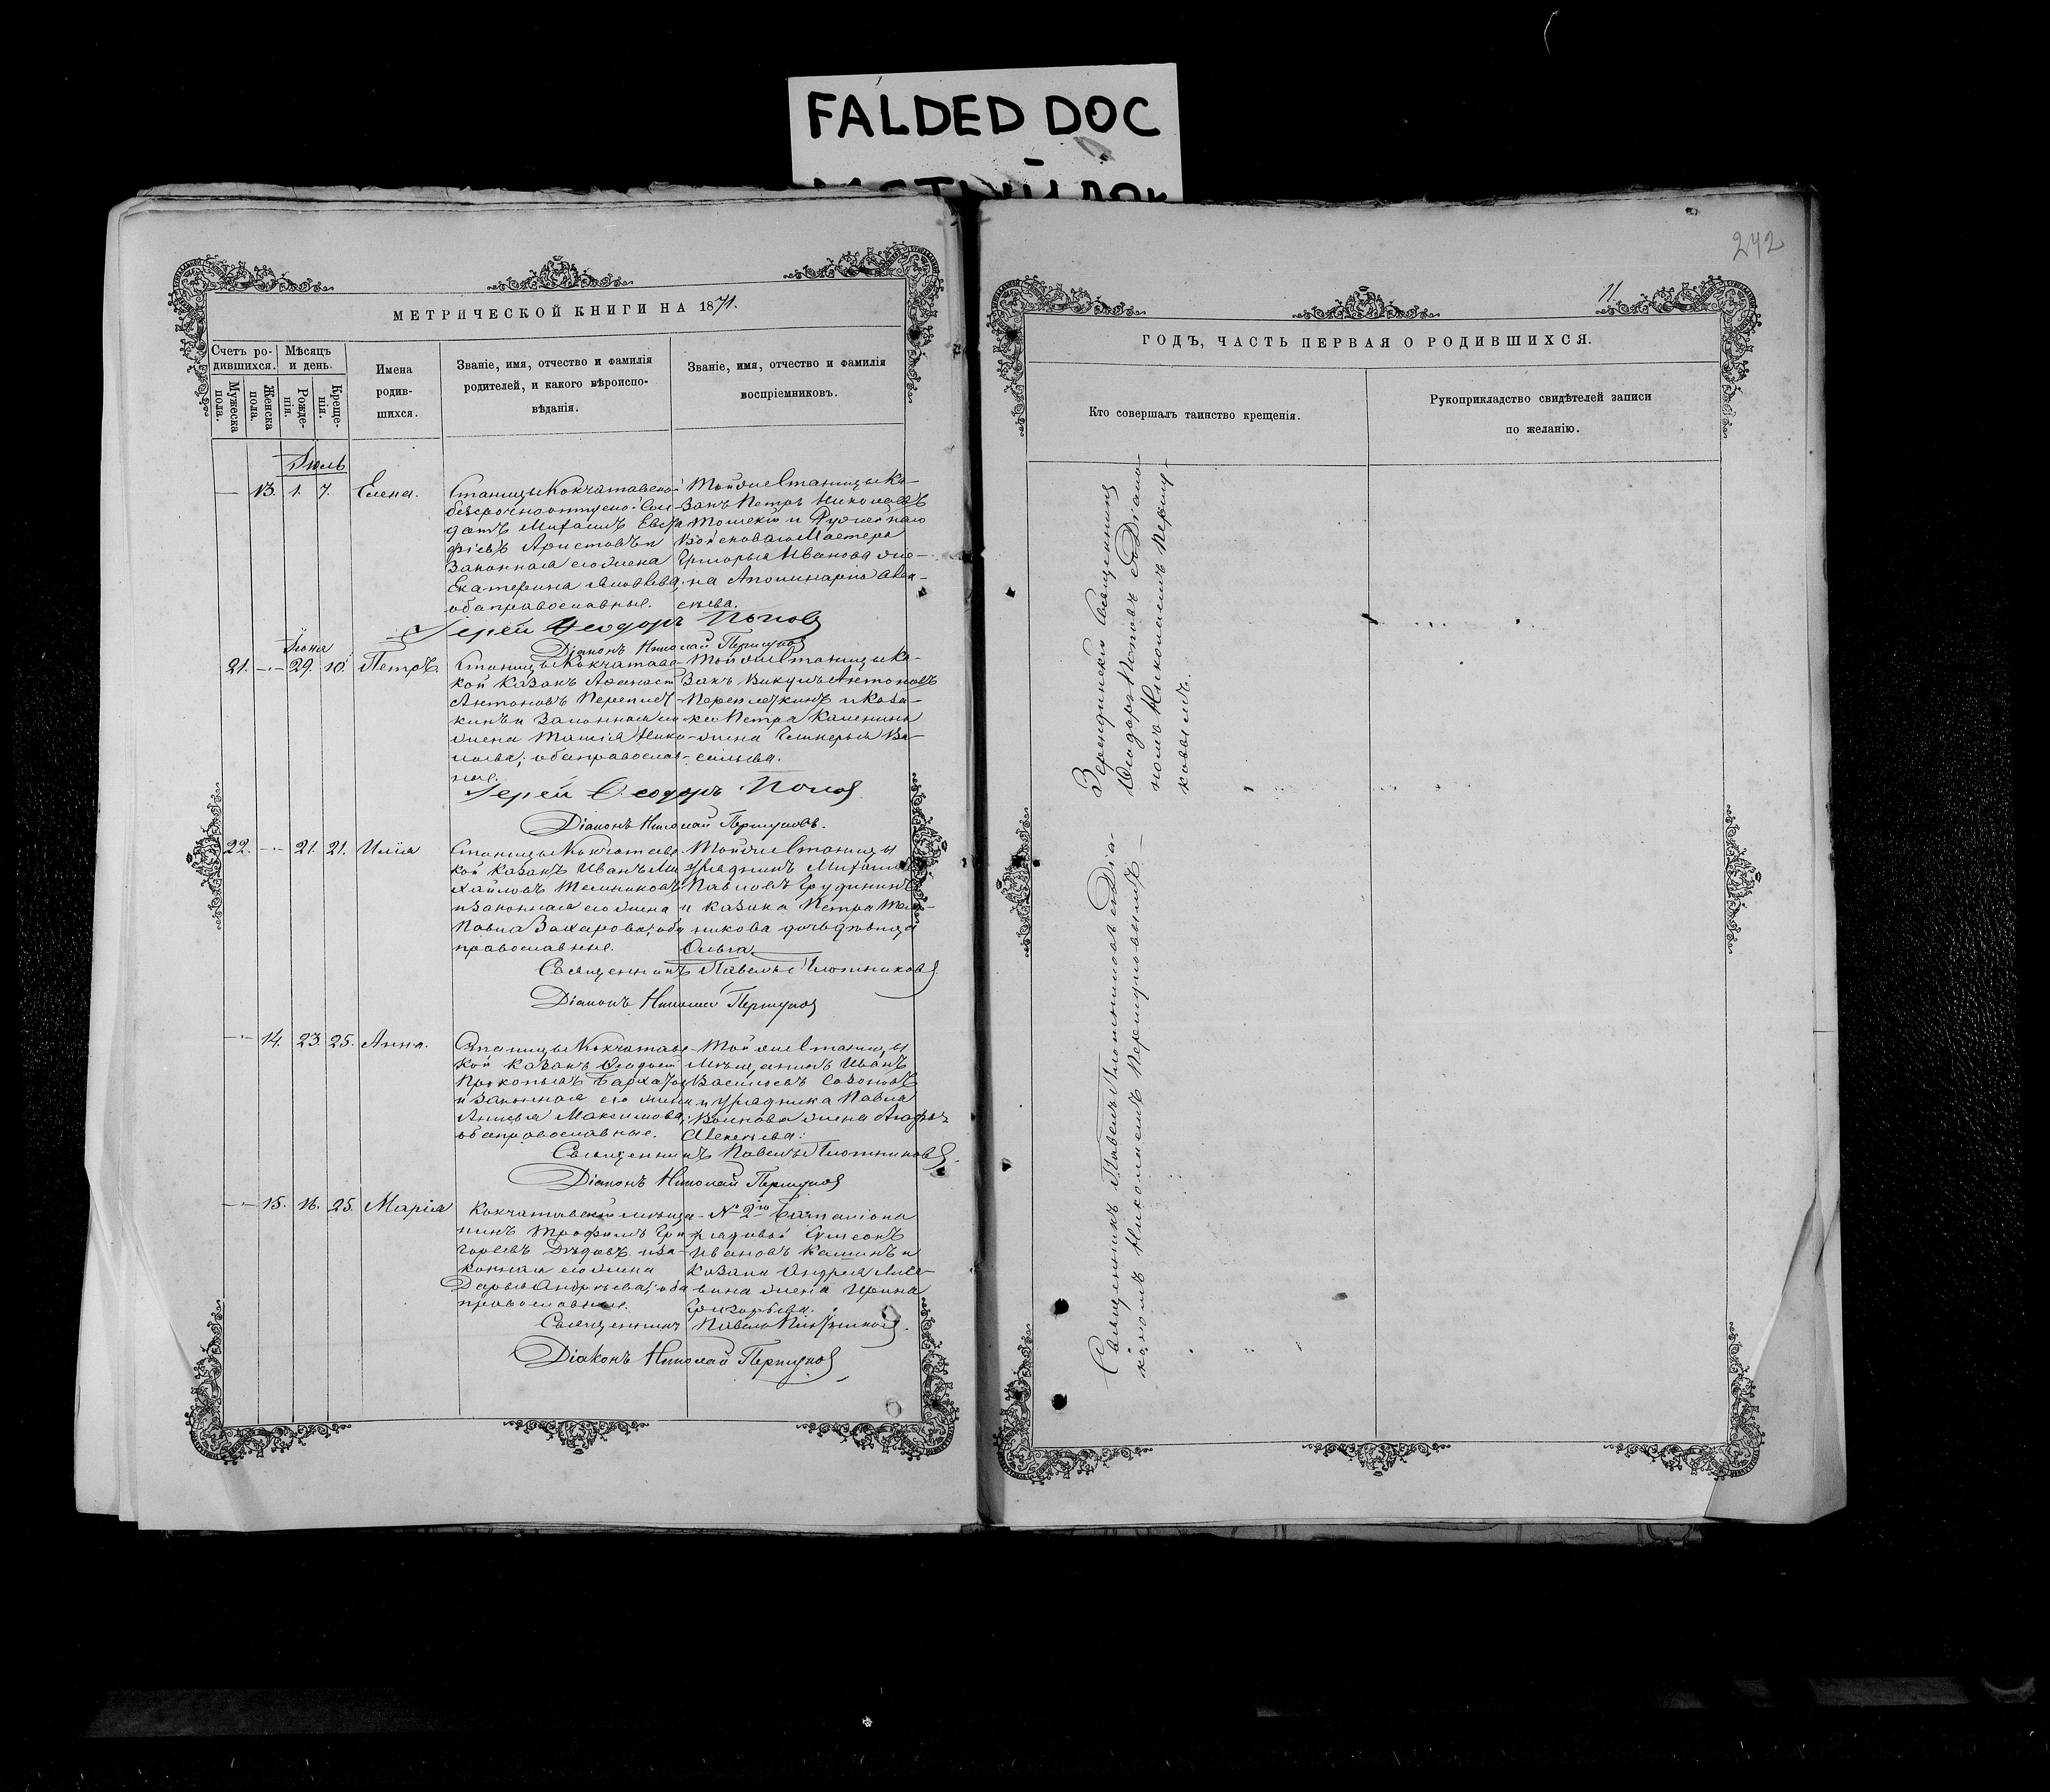 FALDED DOC
МЕТРИЧЕСКОЙ КНИГИ НА 1871.
Счетъ ро-
дившихся.
Мужеска
пола.
Женска
пола.
Мѣсяцъ
и день.
Рожде-
нія.
Креще-
нія.
Имена
родив-
шихся.
Званіе, имя, отчество и фамилія
родителей, и какого вѣроиспо-
вѣданія.
Званіе, имя, отчество и фамилія
воспріемниковъ.
Іюль
13. 1. 7. Елена.
Станицы Кокчетавской
безсрочноотпускн. Сол-
датъ Михаилъ Евста
фіевъ Аристовъ и
Законная его жена
Екатерина Яковлева,
оба православные.
Той же Станицы Ка-
закъ Петръ Николаевъ
и Ружейнаго
Войсковаго Мастера
Григорья Иванова же-
на Аполинарія Але-
ксѣева.
Іерей Ѳеодоръ Поповъ
Діаконъ Николай Першуковъ
Іюня
21. 29. 10. Петръ.
Станицы Кокчетавс-
кой Казакъ Афанасій
Антоновъ Переплет-
кинъ и Законная его
жена Таисія Нико-
лаева; оба православ-
ные.
Той же Станицы Ка-
закъ Викулъ Антоновъ
Переплеткинъ и Каза-
ка Петра Калинина
жена Гликерья Ва-
сильева.
Іерей Ѳеодоръ Поповъ
Діаконъ Николай Першуковъ.
22. 21. 21. Илія
Станицы Кокчетавс-
кой Казакъ Иванъ Ми
хайловъ Мельниковъ
и законная его жена
Павла Захарова, оба
православные.
Той же Станицы
Урядникъ Михаилъ
Павловъ Грудининъ
и казака Петра Мель-
никова дочь дѣвица
Ольга
Священникъ Павелъ Плотниковъ
Діаконъ Николай Першуковъ
14. 23. 25. Анна.
Станицы Кокчетавс-
кой Казакъ Ѳеодосій
Прокопьевъ Бархатовъ
и Законная его жена
Анисья Максимова,
оба православные.
Той же Станицы
Мѣщанинъ Иванъ
Васильевъ Сазоновъ
и урядника Павла
Волкова жена Агафья
Алексѣева.
Священникъ Павелъ Плотниковъ
Діаконъ Николай Першуковъ
15. 16. 25. Марія
Кокчетавскій мѣща-
нинъ Трофимъ Гри
горьевъ Дѣдовъ и за-
конная его жена
Дарья Андрѣева; оба
православные.
№ 2го Баталіона
рядовой Симеонъ
Ивановъ Калининъ и
казака Андрея
жена Ирина
Григорьева.
Священникъ Павелъ Плотниковъ
Діаконъ Николай Першуковъ
242
11.
ГОДЪ, ЧАСТЬ ПЕРВАЯ О РОДИВШИХСЯ.
Кто совершалъ таинство крещенія.
Рукоприкладство свидѣтелей записи
по желанію.
Зерендинскій Священникъ
Ѳеодоръ Поповъ съ Діако-
номъ Николаемъ Першу-
ковымъ.
Священникъ Павелъ Плотниковъ съ Діа-
кономъ Николаемъ Першуковымъ.